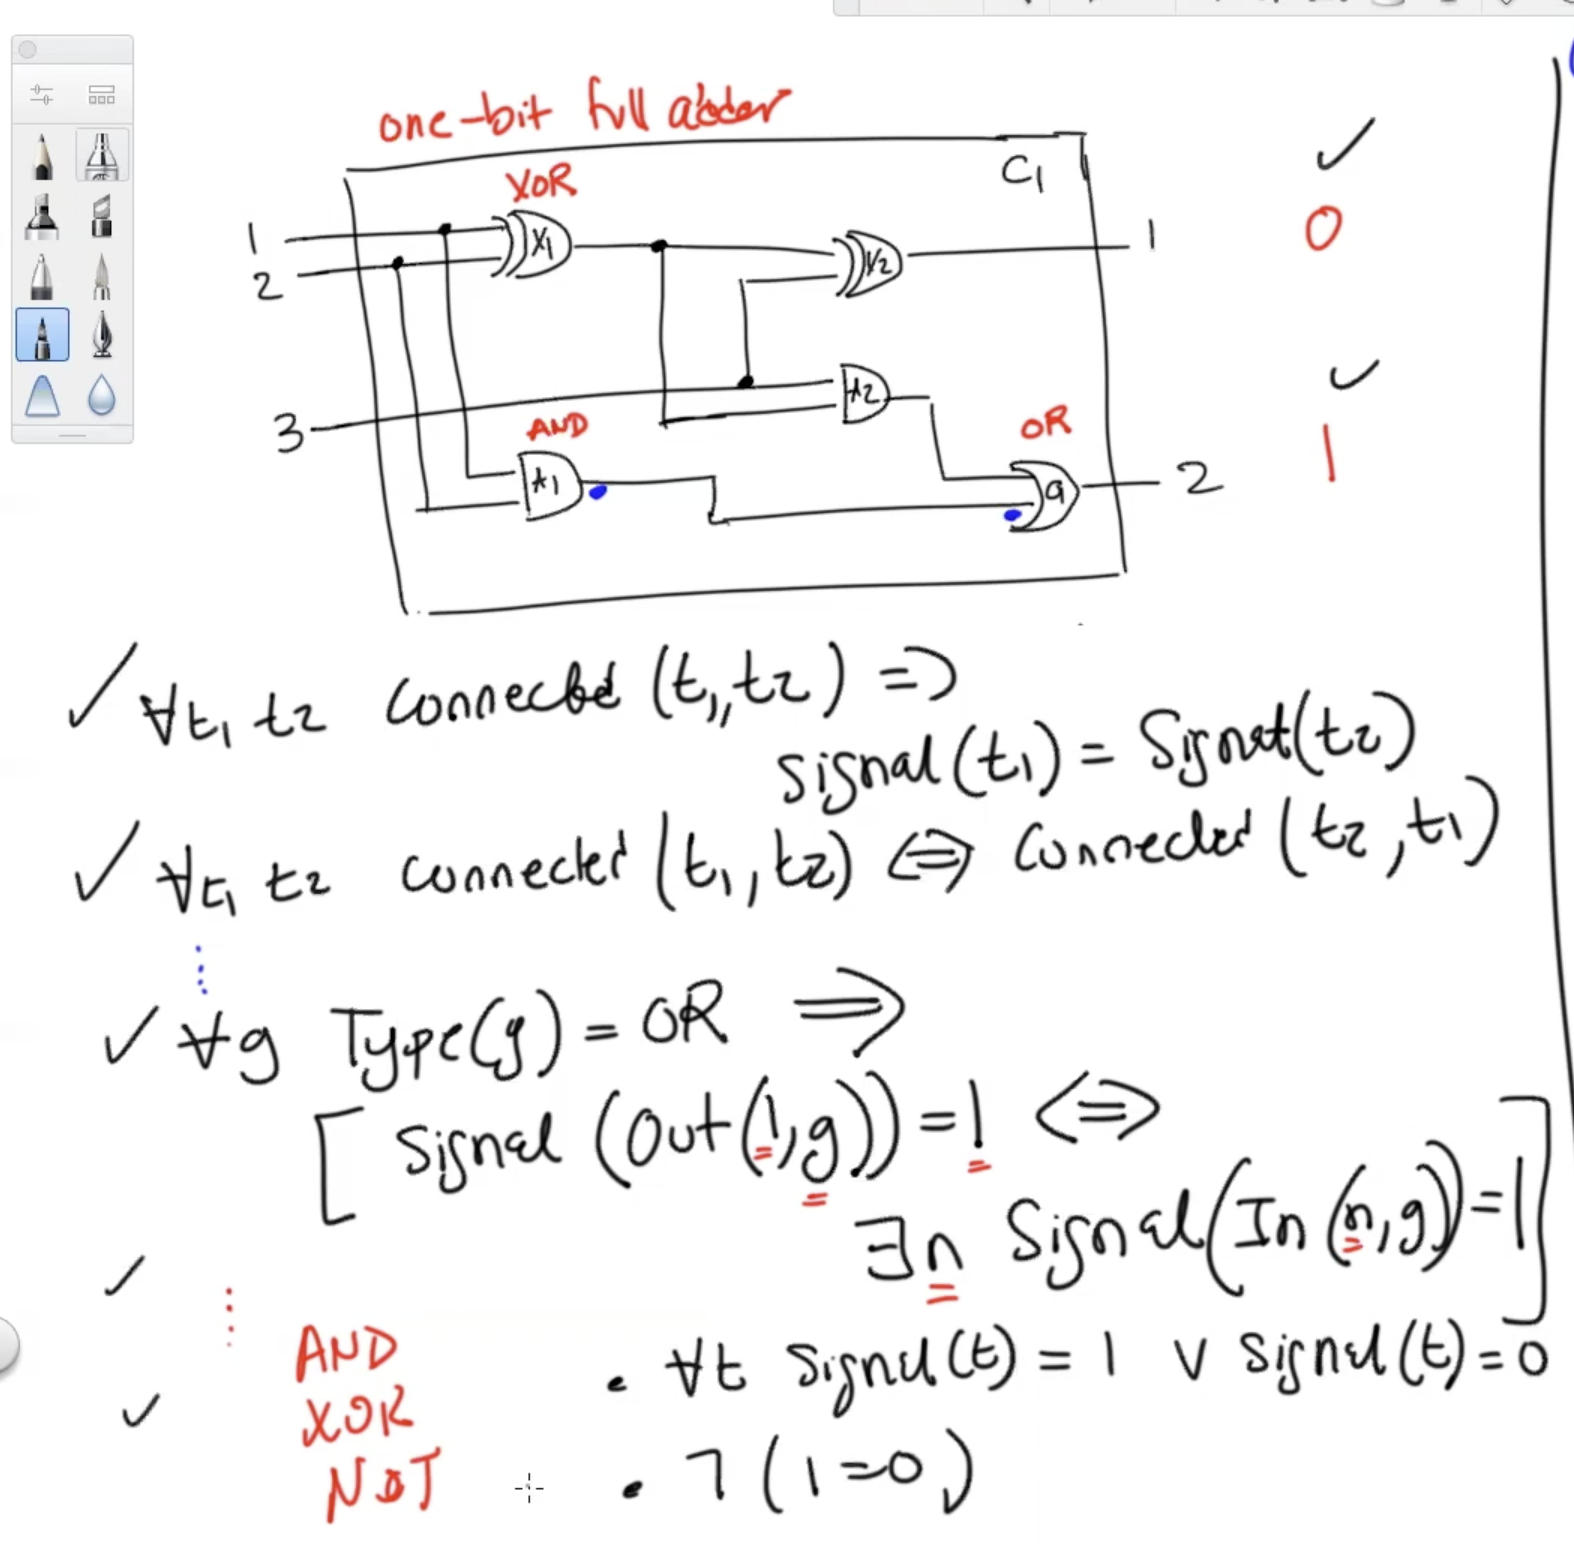 one-bit full adder
XOR
C1
1
X1
X2
1
0
2
3
A2
AND
OR
A1
O1
2
1
∀t1 t2 connected (t1, t2) =>
signal (t1) = Signal (t2)
∀t1 t2 connected (t1, t2) <=> connected (t2, t1)
∀g Type(g) = OR =>
[ Signal (Out(1,g)) = 1 <=>
∃n Signal (In (n,g)) = 1 ]
AND
. ∀t Signal (t) = 1 ∨ Signal (t) = 0
XOR
NOT
. ¬ (1=0)